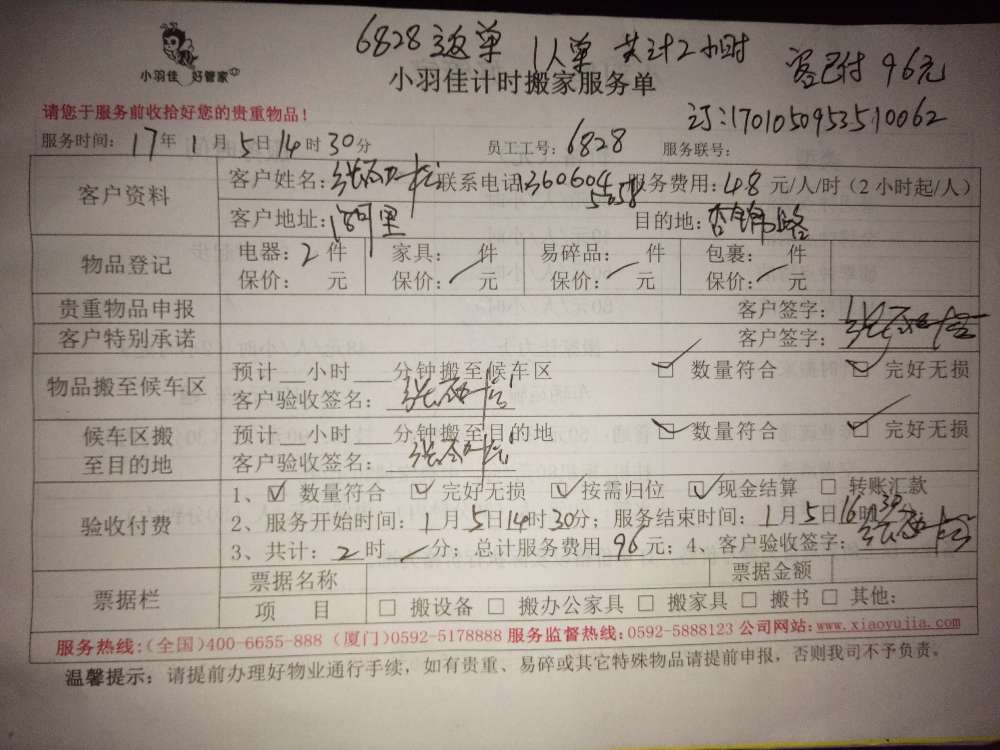 6828 返单 1人单 共计2小时
客已付 96元
小羽佳 好管家
小羽佳计时搬家服务单
请您于服务前收拾好您的贵重物品!
订:1701050953510062
服务时间: 17年 1月 5日 14时 30分 员工工号: 6828 服务联号:
客户资料 客户姓名: 联系电话: 服务费用: 48 元/人/时(2小时起/人)
客户地址: 目的地: 杏锦路
物品登记 电器: 2 件 家具: 件 易碎品: 件 包裹: 件
保价: 元 保价: 元 保价: 元 保价: 元
贵重物品申报 客户签字:
客户特别承诺 客户签字:
物品搬至候车区 预计__小时___分钟搬至候车区 ☑ 数量符合 ☑ 完好无损
客户验收签名:
候车区搬至目的地 预计__小时___分钟搬至目的地 ☑ 数量符合 ☑ 完好无损
客户验收签名:
验收付费 1、☑ 数量符合 ☑ 完好无损 ☑ 按需归位 ☑ 现金结算 □ 转账汇款
2、服务开始时间: 1月 5日 14时 30分; 服务结束时间: 1月 5日 16时 30
3、共计: 2 时 分; 总计服务费用 96 元; 4、客户验收签字:
票据栏 票据名称 票据金额
项 目 □ 搬设备 □ 搬办公家具 □ 搬家具 □ 搬书 □ 其他:
服务热线:(全国)400-6655-888 (厦门)0592-5178888 服务监督热线:0592-5888123 公司网站:www.xiaoyujia.com
温馨提示: 请提前办理好物业通行手续,如有贵重、易碎或其它特殊物品请提前申报,否则我司不予负责。